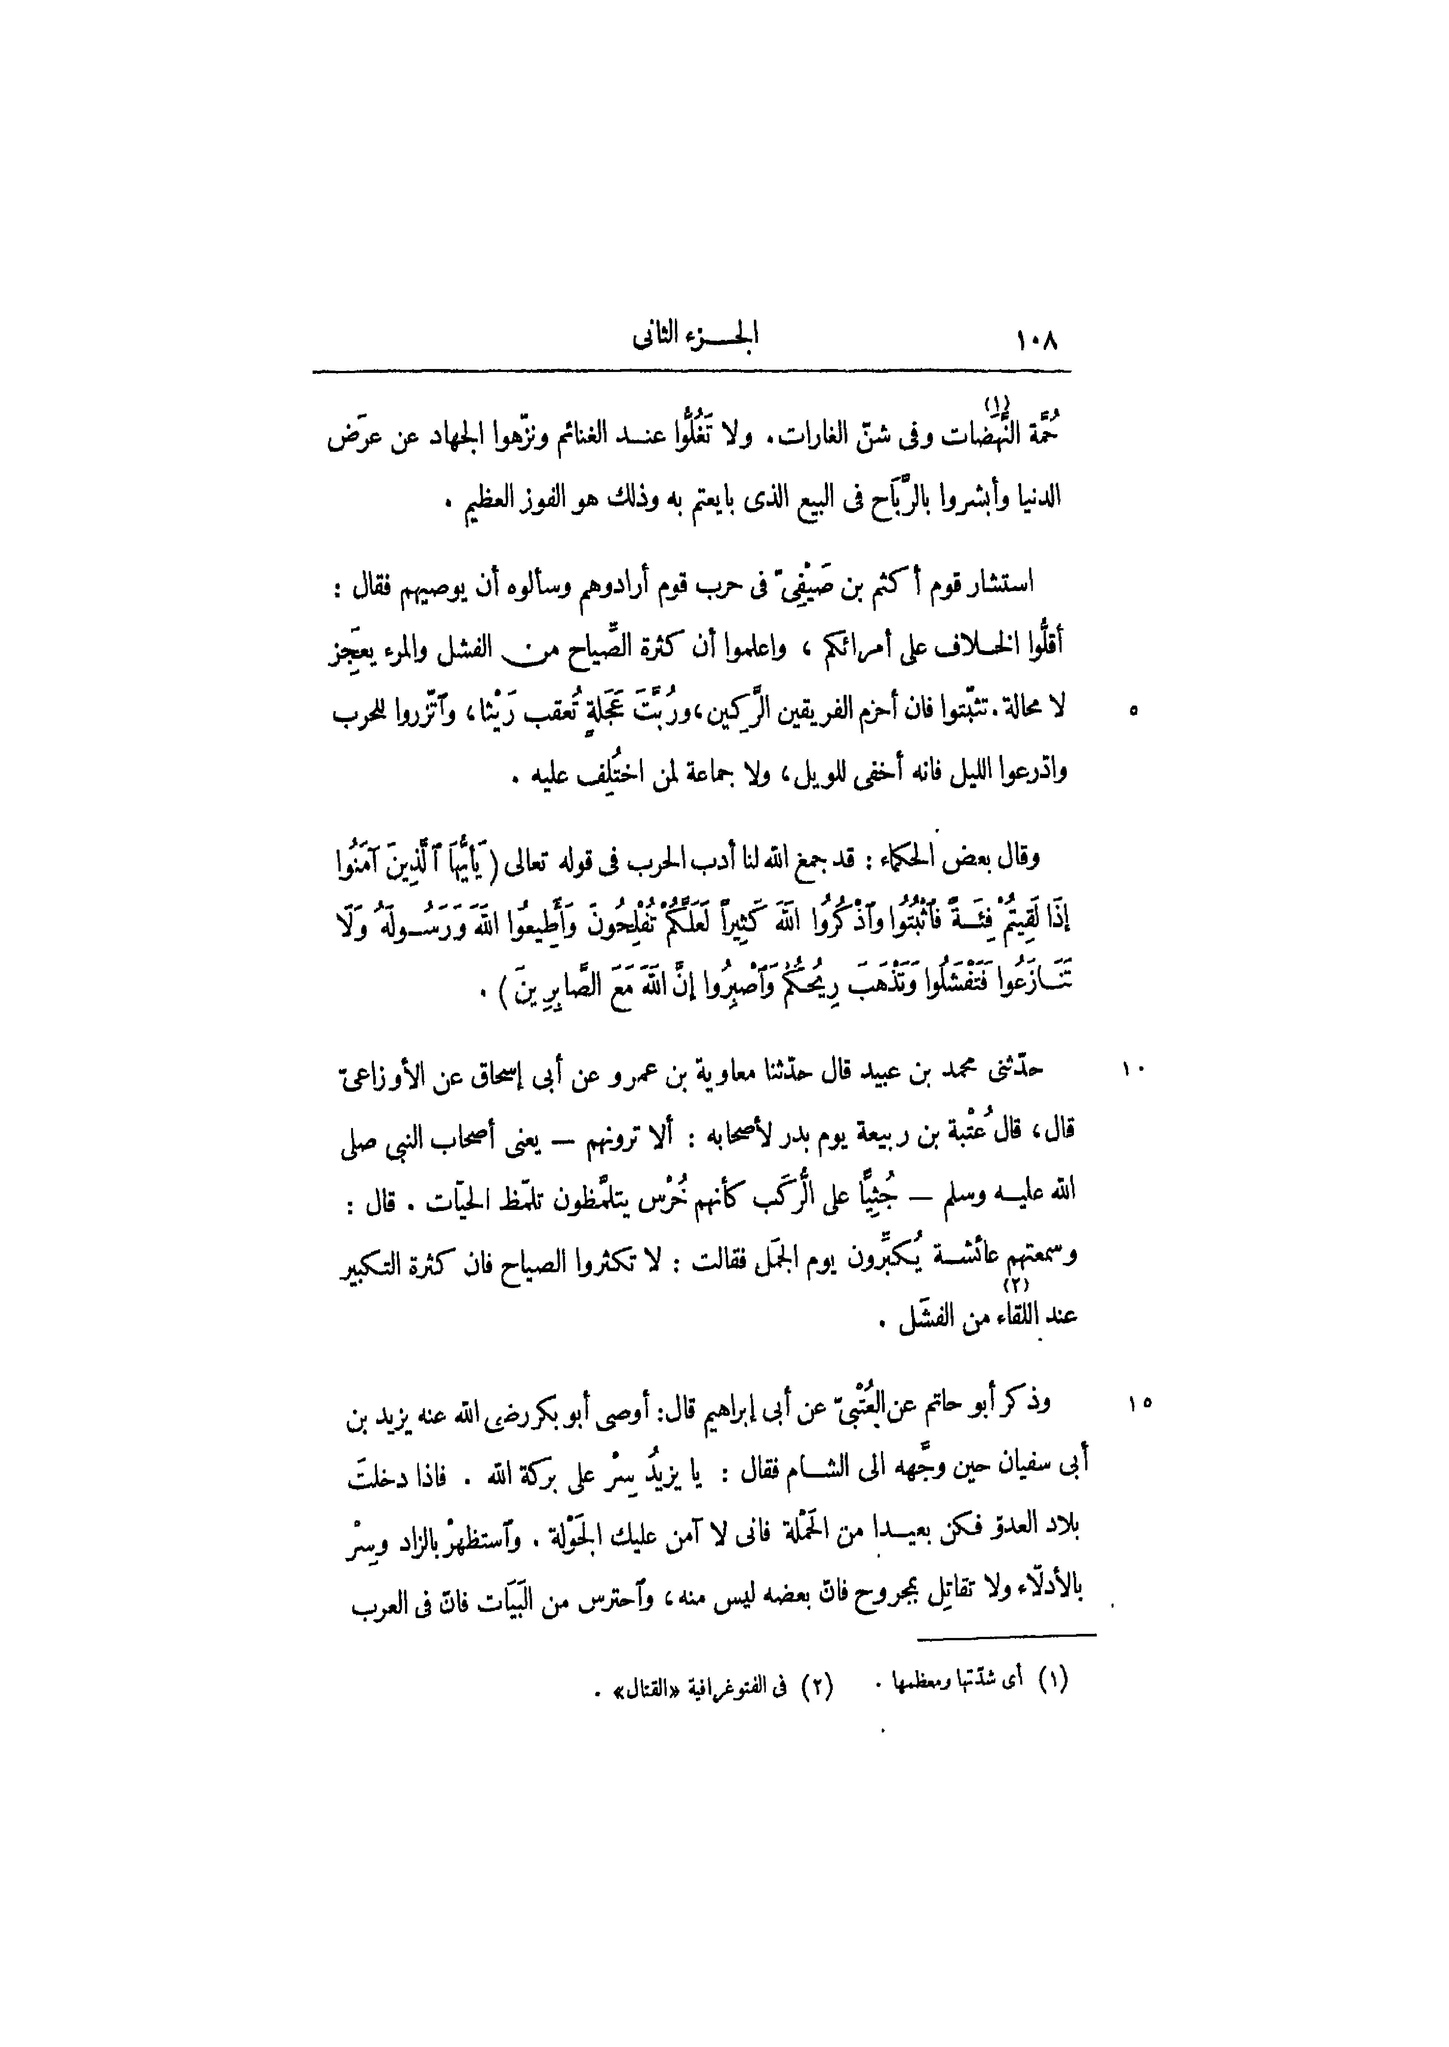 ١٠٨ الجـزء الثانى
(١)
حُمَّة النَّهَضات وفى شنّ الغارات. ولا تَغُلُّوا عنـد الغنائم ونزّهوا الجهاد عن عرَض
الدنيا وأبشروا بالرَّبَاح فى البيع الذى بايعتم به وذلك هو الفوز العظيم .
استشار قوم أكثم بن صَيْفِىّ فى حرب قوم أرادوهم وسألوه أن يوصيهم فقال :
أقلُّوا الخـلاف على أمرائكم ، واعلموا أن كثرة الصِّياح من الفشل والمرء يعجَز
٥ لا محالة . تثبّتوا فان أحزم الفريقين الرَّكِين، ورُبَّتَ عَجَلةٍ تُعقب رَيْثا، وٱتّزروا للحرب
وادّرعوا الليل فانه أخفى للويل، ولا جماعة لمن اختُلِف عليه .
وقال بعض الحكماء : قد جمع الله لنا أدب الحرب فى قوله تعالى ( يَأَيُّهَا ٱلَّذِينَ آمَنُوا
إذَا لَقِيتُمْ فِئَـةً فَٱثْبُتُوا وَٱذْكُرُوا اللهَ كَثِيراً لَعَلَّكُمْ تُفْلِحُونَ وَأَطِيعُوا اللهَ وَرَسُـولَهُ وَلَا
تَنَـازَعُوا فَتَفْشَلُوا وَتَذْهَبَ رِيحُكُمْ وَٱصْبِرُوا إنَّ اللهَ مَعَ الصَّابِرِينَ ) .
١٠ حدّثنى محمد بن عبيد قال حدّثنا معاوية بن عمرو عن أبى إسحاق عن الأوزاعىّ
قال، قال عُتْبة بن ربيعة يوم بدر لأصحابه : ألا ترونهم — يعنى أصحاب النبى صلى
الله عليـه وسلم — جُثِيًّا على الرُّكَب كأنهم خُرْس يتلمَّظون تلمّظ الحيّات . قال :
وسمعتهم عائشـة يُكبِّرون يوم الجمَل فقالت : لا تكثروا الصياح فان كثرة التكبير
(٢)
عند اللقاء من الفشَل .
١٥ وذكر أبو حاتم عن العُتْبىّ عن أبى إبراهيم قال: أوصى أبو بكر رضى الله عنه يزيد بن
أبى سفيان حين وجَّهه الى الشـام فقال : يا يزيدُ سِرْ على بركة الله . فاذا دخلتَ
بلاد العدوّ فكن بعيـدا من الحَمْلة فانى لا آمن عليك الجَوْلة . وٱستظهرْ بالزاد وسِرْ
بالأدلّاء ولا تقاتِل بمجروح فانّ بعضه ليس منه، وٱحترس من البَيَات فانّ فى العرب
(١) أى شدّتها ومعظمها . (٢) فى الفتوغرافية «القتال» .